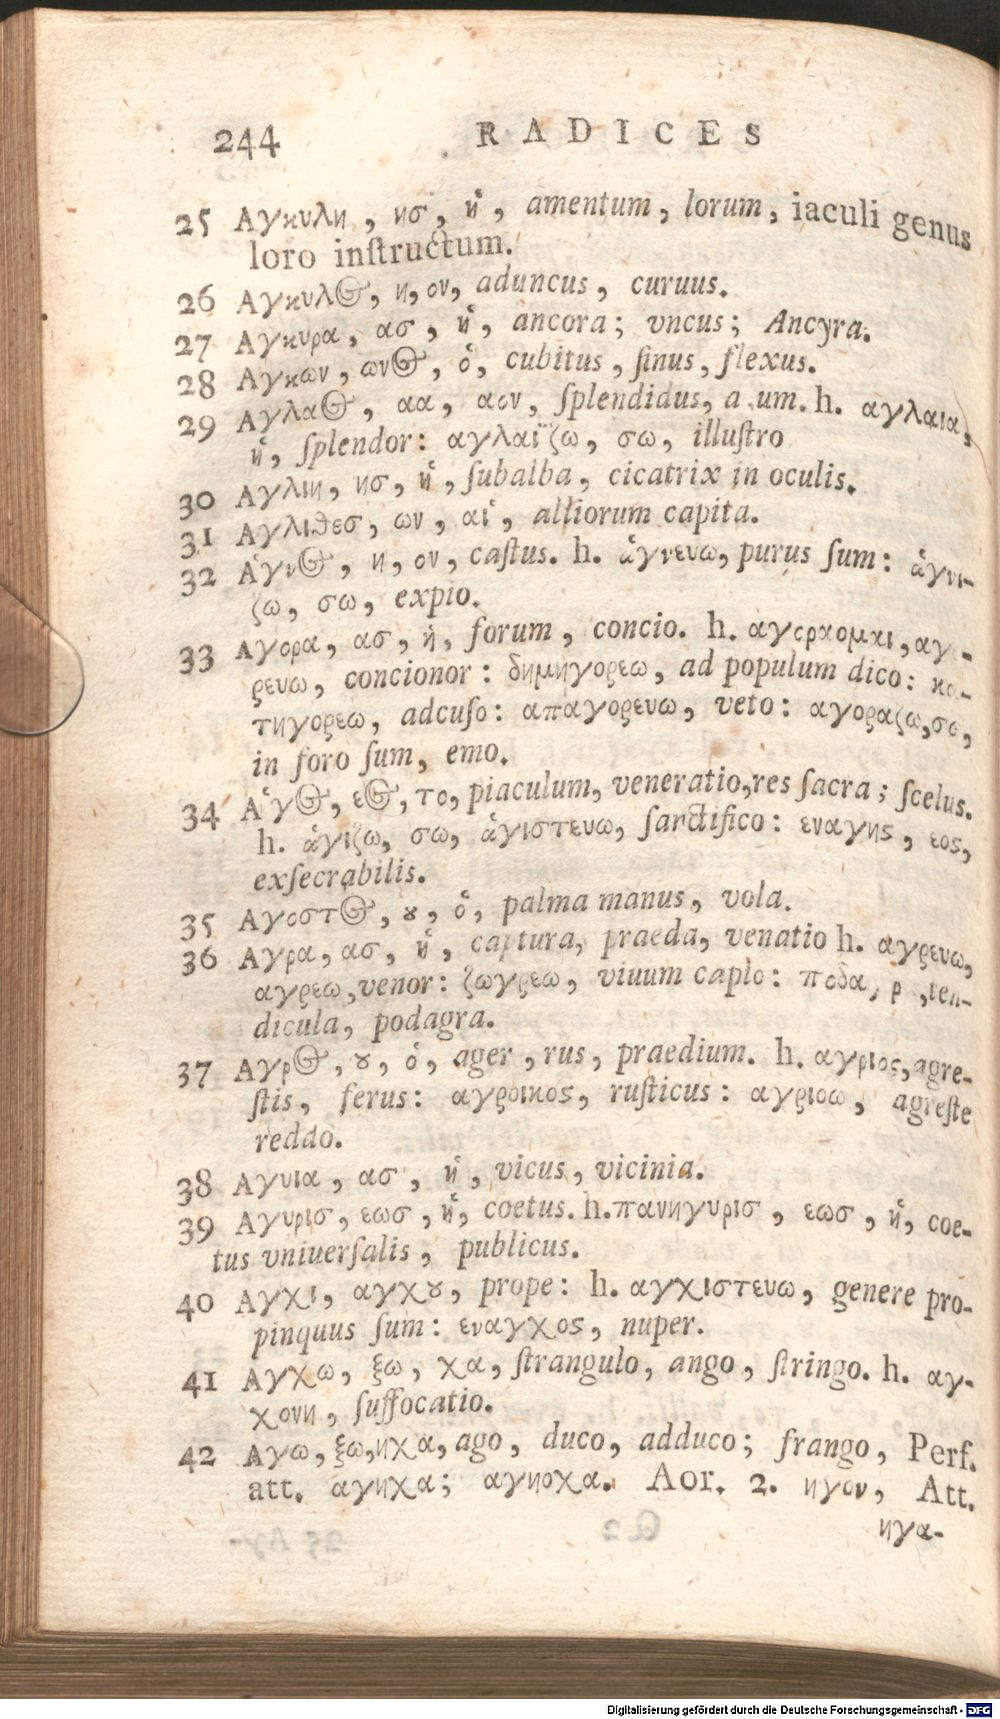 244 RADICES
25 Αγκυλη, ησ, ἡ, amentum, lorum, iaculi genus
loro inſtructum.
26 Αγκυλος, η, ον, aduncus, curuus.
27 Αγκυρα, ασ, ἡ, ancora; vncus; Ancyra.
28 Αγκων, ωνος, ὁ, cubitus, ſinus, flexus.
29 Αγλαος, αα, αον, ſplendidus, a um. h. αγλαια,
ἡ, ſplendor: αγλαϊζω, σω, illuſtro
30 Αγλιη, ησ, ἡ, ſubalba, cicatrix in oculis.
31 Αγλιθεσ, ων, αἱ, alliorum capita.
32 Ἁγνος, η, ον, caſtus. h. ἁγνευω, purus ſum: ἁγνι-
ζω, σω, expio.
33 Αγορα, ασ, ἡ, forum, concio. h. αγοραομαι, αγο-
ρευω, concionor: δημηγορεω, ad populum dico: κα-
τηγορεω, adcuſo: απαγορευω, veto: αγοραζω, σω,
in foro ſum, emo.
34 Ἁγος, εος, το, piaculum, veneratio, res ſacra; ſcelus.
h. ἁγιζω, σω, ἁγιστευω, ſanctifico: εναγης, εος,
exſecrabilis.
35 Αγοστος, ȣ, ὁ, palma manus, vola.
36 Αγρα, ασ, ἡ, captura, praeda, venatio h. αγρευω,
αγρεω, venor: ζωγρεω, viuum capio: ten-
dicula, podagra.
37 Αγρος, ȣ, ὁ, ager, rus, praedium. h. αγριος, agre-
ſtis, ferus: αγροικος, ruſticus: αγριοω, agreſte
reddo.
38 Αγυια, ασ, ἡ, vicus, vicinia.
39 Αγυρισ, εωσ, ἡ, coetus. h. πανηγυρισ, εωσ, ἡ, coe-
tus vniuerſalis, publicus.
40 Αγχι, αγχȣ, prope: h. αγχιστευω, genere pro-
pinquus ſum: εναγχος, nuper.
41 Αγχω, ξω, χα, ſtrangulo, ango, ſtringo. h. αγ-
χονη, ſuffocatio.
42 Αγω, ξω, ηχα, ago, duco, adduco; frango, Perf.
att. αγηχα; αγηοχα. Aor. 2. ηγον, Att.
ηγα-
Digitalisierung gefördert durch die Deutsche Forschungsgemeinschaft - DFG